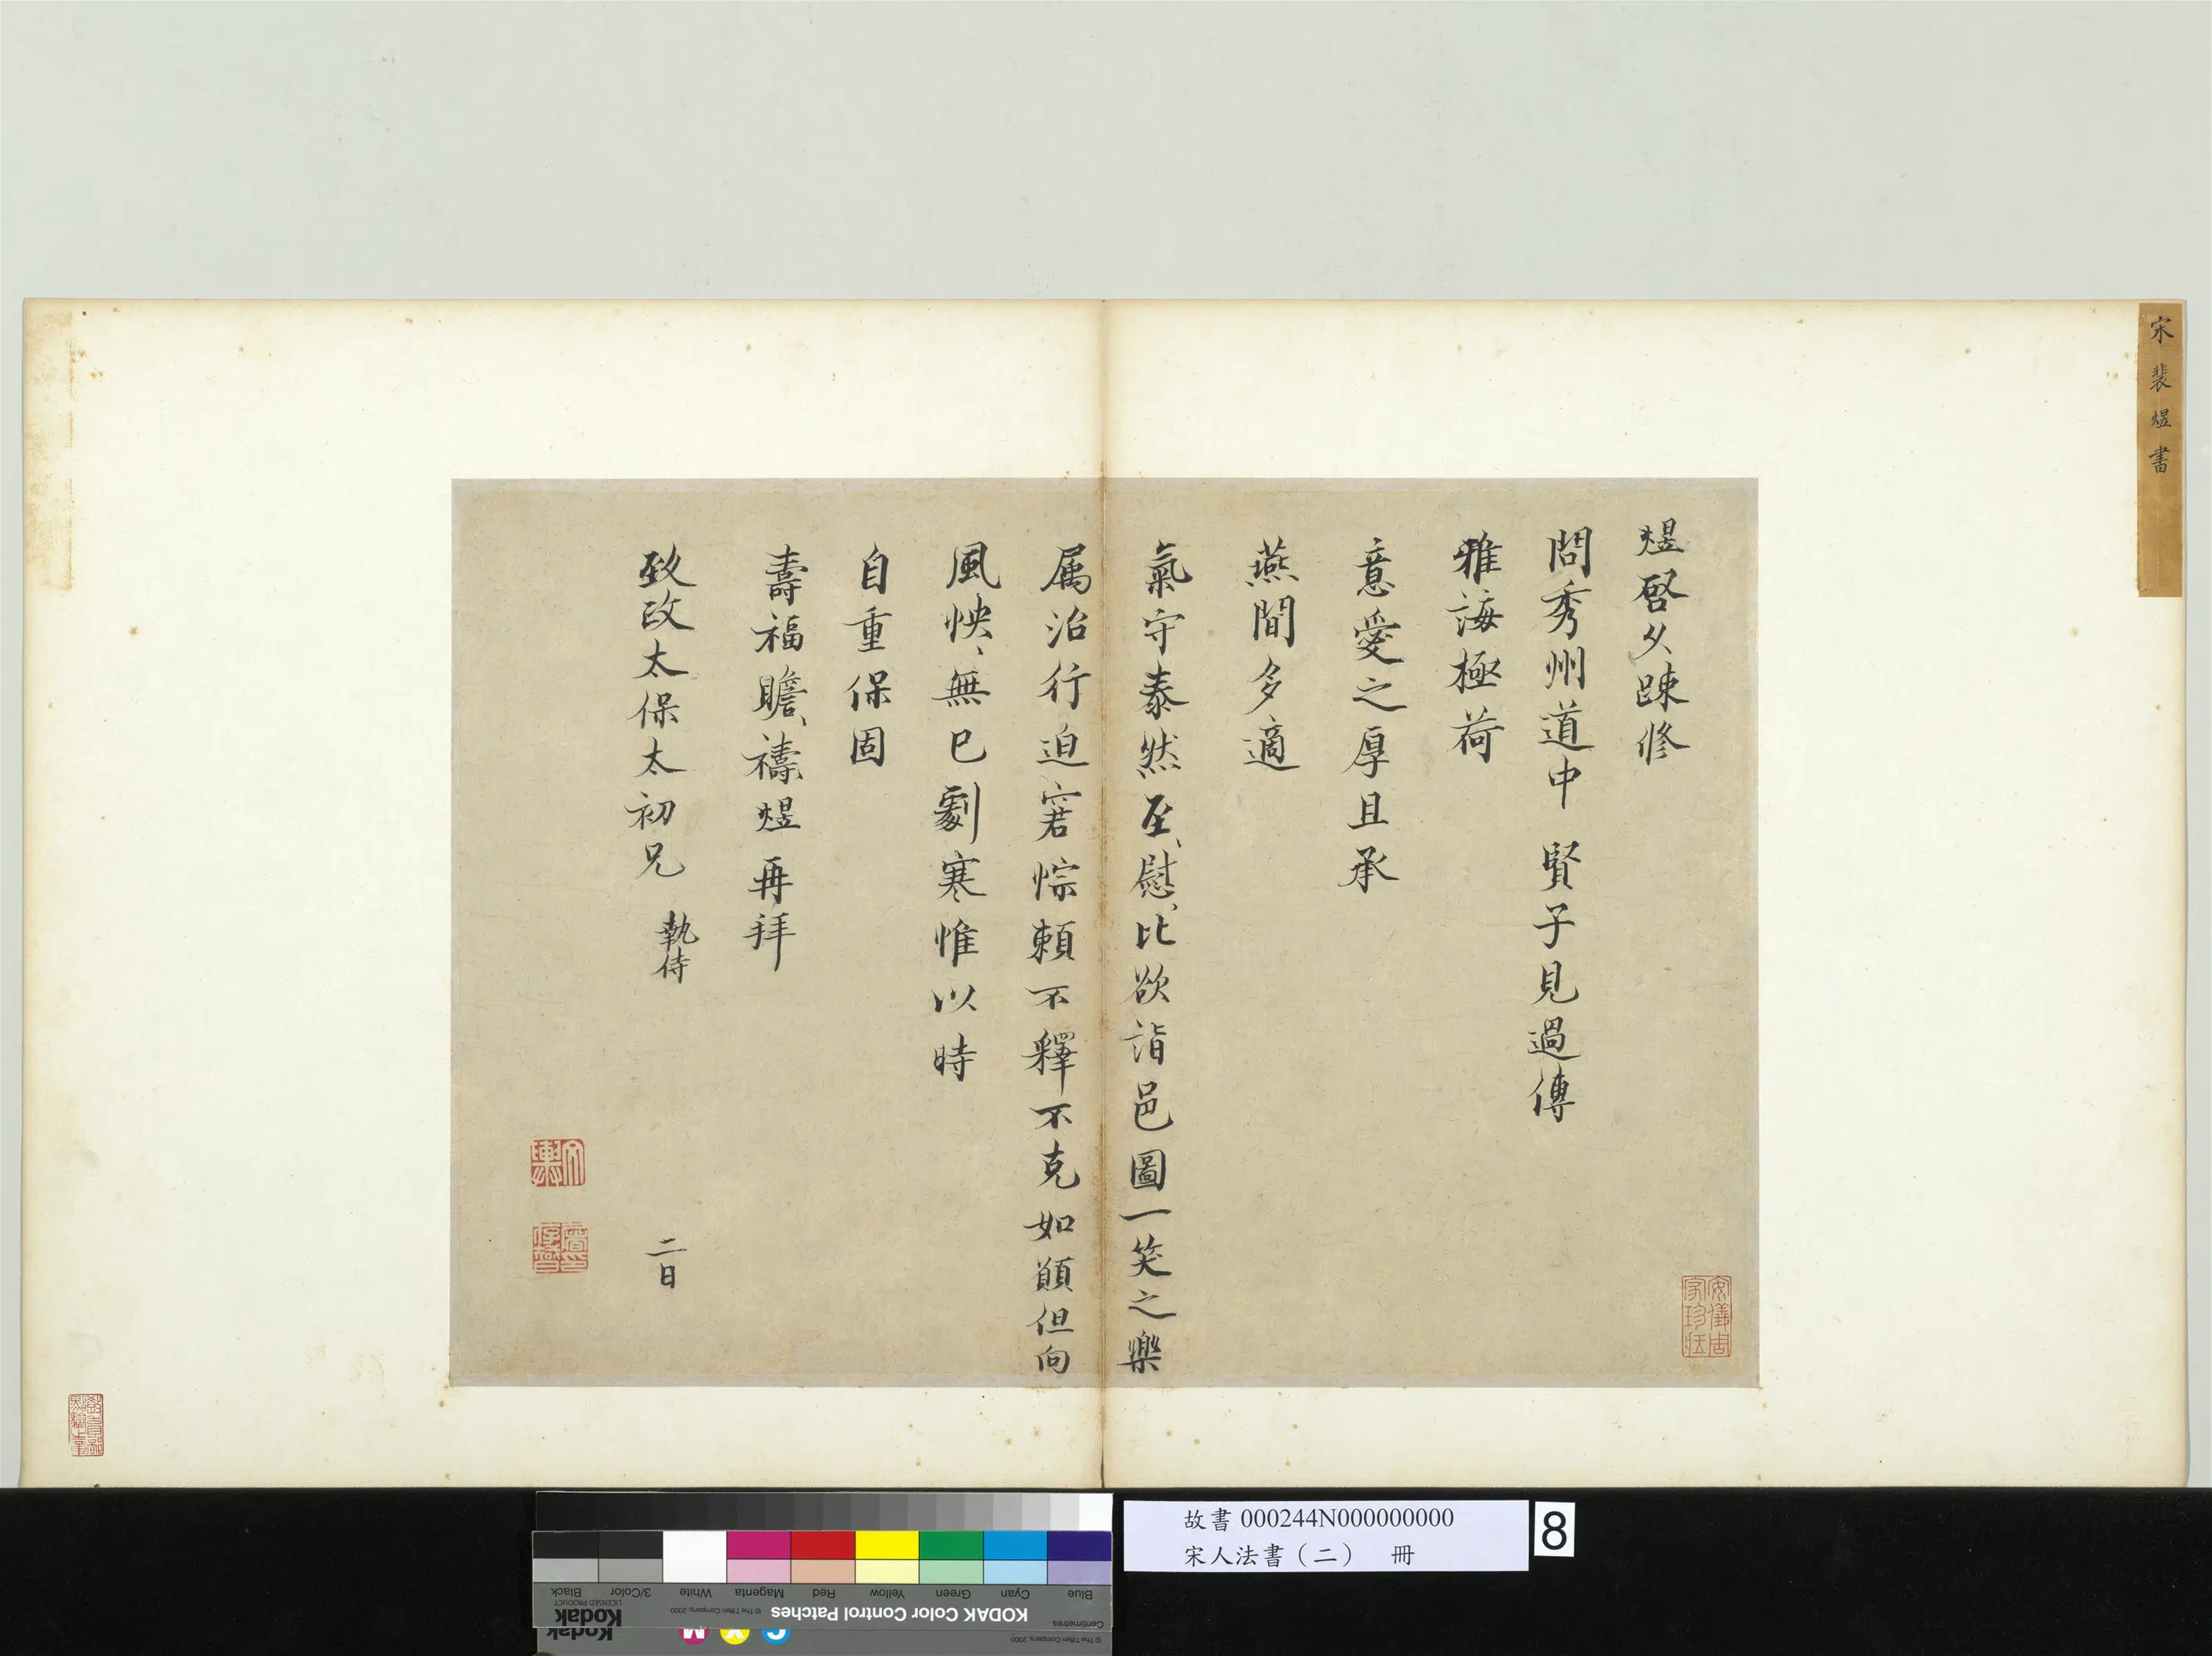 宋裴煜書
煜啓久踈修
問秀州道中 賢子見過傳
雅誨極荷
意愛之厚且承
燕間多適
氣守泰然至、慰、比欲詣邑圖一笑之樂
属治行迫窘悰頼不釋不克如願但向
風怏、無已劇寒惟以時
自重保固
壽福瞻、禱、煜再拜
致政太保太初兄 執侍
二日
安儀周家珍藏
故書 000244N000000000
宋人法書（二） 冊
8
KODAK Color Control Patches
© The Tiffen Company, 2000
Kodak
LICENSED PRODUCT
Centimetres
Blue
Cyan
Green
Yellow
Red
Magenta
White
3/Color
Black
C
Y
M
© The Tiffen Company, 2000
Kodak